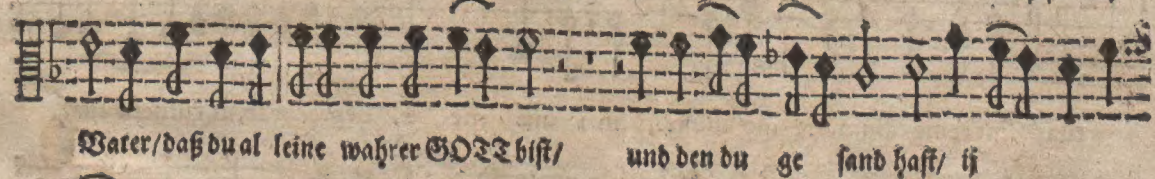 Vater/daß du al leine wahrer GOTT bist/ und den du ge sand hast/ ij